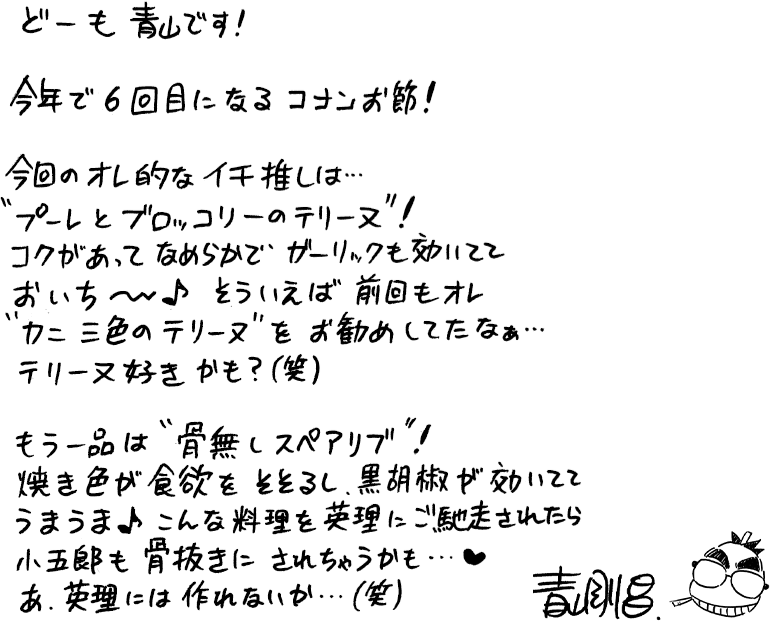 どーも 青山です!
今年で6回目になる コナンお節!
今回のオレ的な イチ推しは…
"プーレとブロッコリーのテリーヌ"!
コクがあって なめらかで ガーリックも効いてて
おいち〜〜♪ そういえば 前回もオレ
"カニ 三色のテリーヌ"を お勧めしてたなぁ…
テリーヌ好き かも?(笑)
もう一品は"骨無しスペアリブ"!
焼き色が食欲を そそるし、黒胡椒が効いてて
うまうま♪ こんな料理を 英理に ご馳走されたら
小五郎も 骨抜きに されちゃうかも…♥
あ、英理には 作れないか…(笑)
青山剛昌.